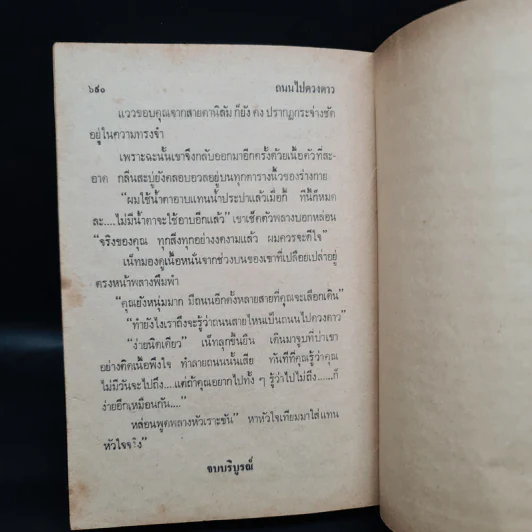 ๖๙๐ ถนนไปดวงดาว
แววขอบคุณจากสายตานิลัม ก็ยัง คง ปรากฏกระจ่างชัด
อยู่ในความทรงจำ
เพราะฉะนั้นเขาจึงกลับออกมาอีกครั้งด้วยเนื้อตัวที่สะ-
อาด กลิ่นสะบู่ยังตลบอวลอยู่บนทุกตารางนิ้วของร่างกาย
"ผมใช้น้ำตาอาบแทนน้ำประปาแล้วเมื่อกี้ ทีนี้ก็หมด
ละ....ไม่มีน้ำตาจะใช้อาบอีกแล้ว" เขาเช็ดตัวพลางบอกหล่อน
"จริงของคุณ ทุกสิ่งทุกอย่างงดงามแล้ว ผมควรจะดีใจ"
เน็ทมองดูเนื้อหนั่นจากช่วงบนของเขาที่เปลือยเปล่าอยู่
ตรงหน้าพลางพึมพำ
"คุณยังหนุ่มมาก มีถนนอีกตั้งหลายสายที่คุณจะเลือกเดิน"
"ทำยังไงเราถึงจะรู้ว่าถนนสายไหนเป็นถนนไปดวงดาว"
"ง่ายนิดเดียว" เน็ทลุกขึ้นยืน เดินมาจูบที่บ่าเขา
อย่างติดเนื้อพึงใจ ทำลายถนนนั้นเสีย ทันทีที่คุณรู้ว่าคุณ
ไม่มีวันจะไปถึง....แต่ถ้าคุณอยากไปทั้ง ๆ รู้ว่าไปไม่ถึง......ก็
ง่ายอีกเหมือนกัน...."
หล่อนพูดพลางหัวเราะขัน" หาหัวใจเทียมมาใส่แทน
หัวใจจริง"
จบบริบูรณ์